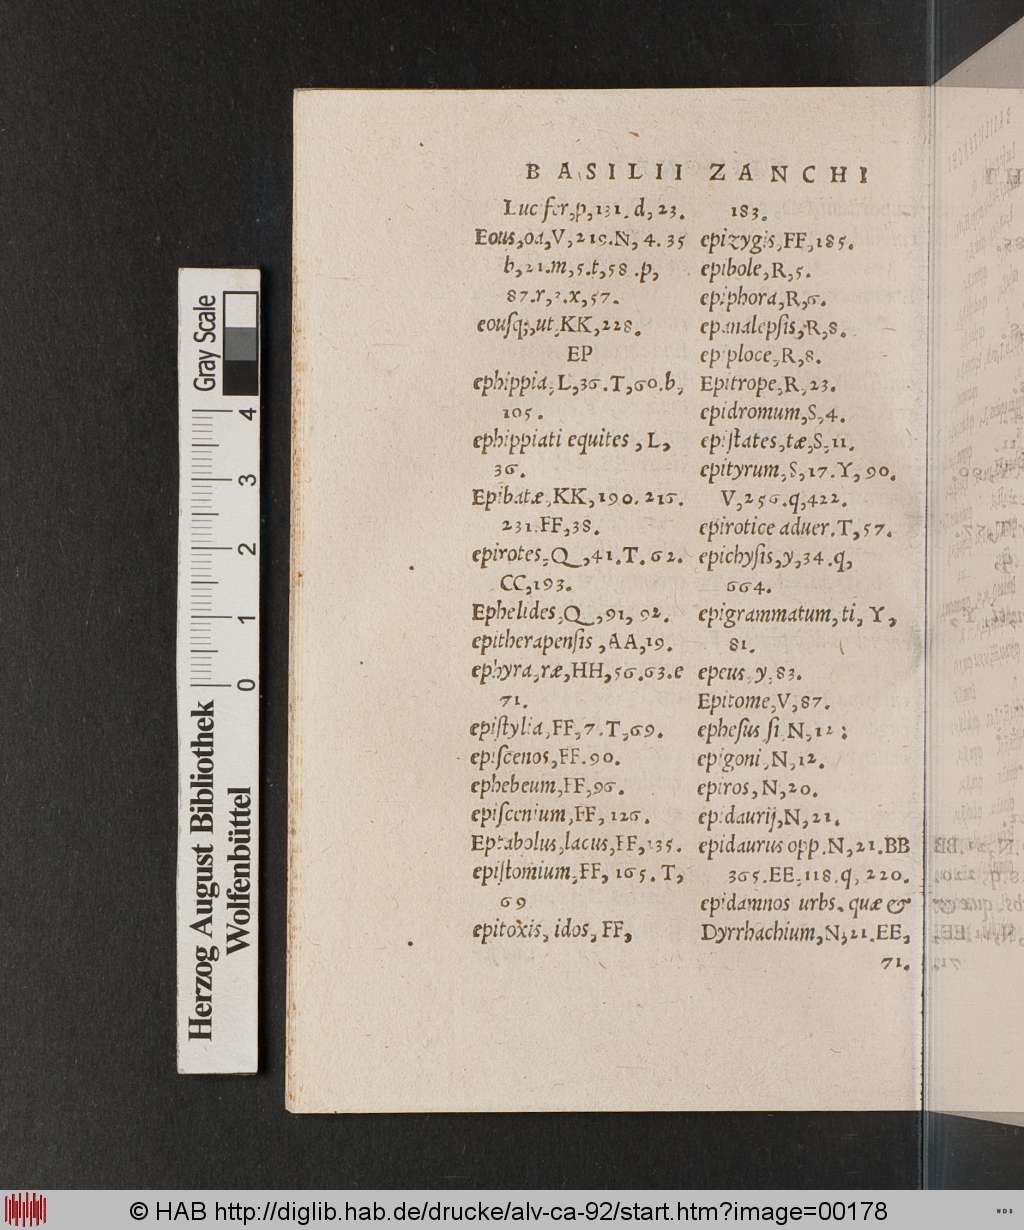 BASILII ZANCHI
Lucifer,p,131.d,23.
Eous,oa,V,219.N,4.35
b,21.m,5.t,58.p,
87.r,3.x,57.
eouſq;,ut,KK,228.
EP
ephippia,L,36.T,60.b,
105.
ephippiati equites,L,
36.
Epibatæ,KK,190.216.
231.FF,38.
epirotes,Q,41.T.62.
CC,193.
Ephelides,Q,91,92.
epitherapenſis,AA,19.
ephyra,ræ,HH,56.63.e
71.
epiſtylia,FF,7.T,69.
epiſcenos,FF.90.
ephebeum,FF,96.
epiſcenium,FF,126.
Eptabolus,lacus,FF,135.
epiſtomium,FF,165.T,
69
epitoxis,idos,FF,
183.
epizygis,FF,185.
epibole,R,5.
epiphora,R,6.
epanalepſis,R,8.
epiploce,R,8.
Epitrope,R,23.
epidromum,S,4.
epiſtates,tæ,S,11.
epityrum,S,17.Y,90.
V,256.q,422.
epirotice aduer.T,57.
epichyſis,y,34.q,
664.
epigrammatum,ti,Y,
81.
epeus,y,83.
Epitome,V,87.
epheſus ſi,N,12:
epigoni,N,12.
epiros,N,20.
epidaurij,N,21.
epidaurus opp.N,21.BB
365.EE,118.q,220.
epidamnos urbs,quæ &
Dyrrhachium,N,21.EE,
71.
Gray Scale
4
3
2
1
0
Herzog August Bibliothek
Wolfenbüttel
© HAB http://diglib.hab.de/drucke/alv-ca-92/start.htm?image=00178